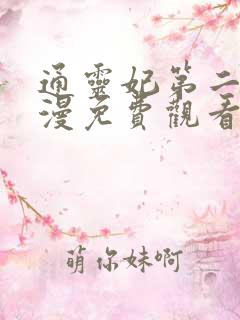 通靈妃第二
漫免費觀看
萌你妹啊